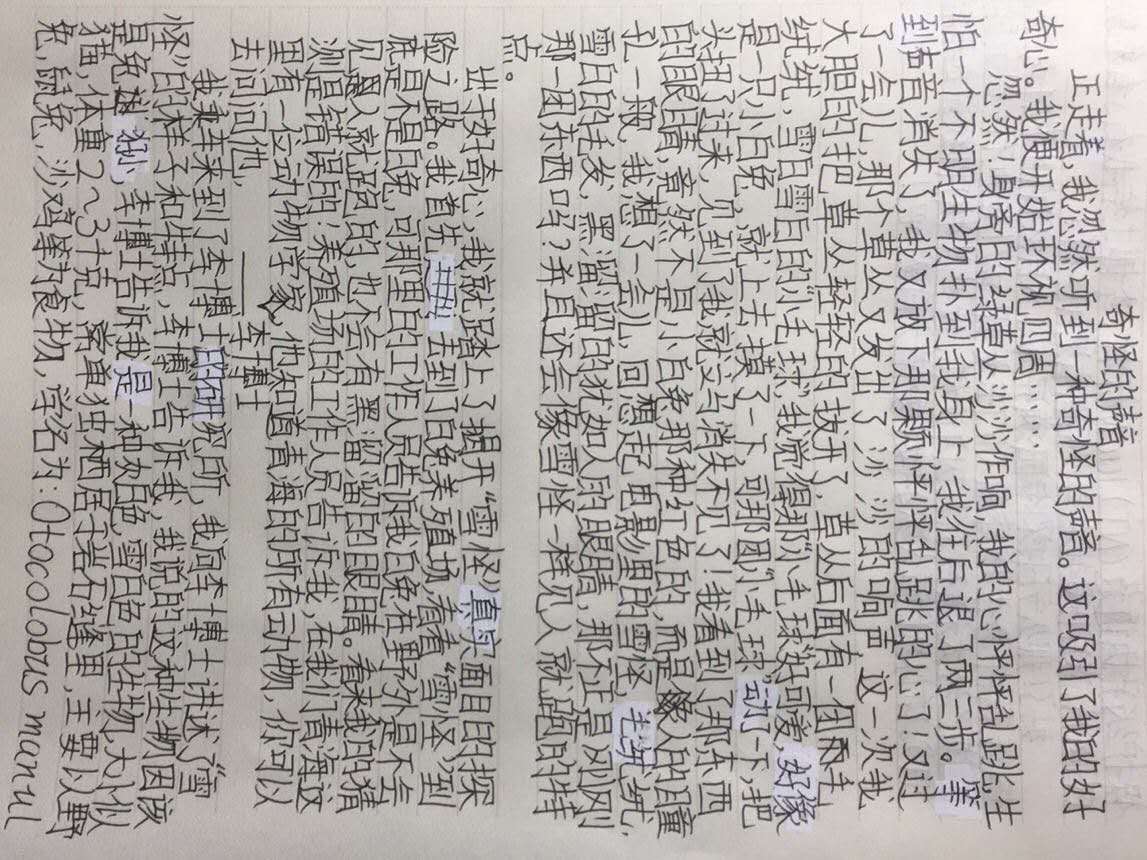 奇怪的声音
正走着，我忽然听到一种奇怪的声音。这吸引了我的好
奇心。我便开始环视四周……
忽然！身旁的草丛沙沙作响，我的心怦怦乱跳，生
怕一个不明生物扑到我身上，我往后退了两三步。等
到声音消失了，我又放下那颗怦怦乱跳的心了！又过
了一会儿，那个草丛又发出了沙沙的响声，这一次我
大胆的把草丛轻轻的扶开了，草丛后面有一团毛
绒绒，雪白雪白的“小毛球”我觉得那“小毛球”好可爱，好像
是一只小白兔，就上去摸了一下，可那团“小毛球”动了一下，把
头扭了过来，见到了我就立马消失不见了！我看到了那东西
的眼睛，竟然不是小白兔那种红色的，而是像人的瞳
孔一般，我想了一会儿，回想起电影里的雪怪，毛绒绒，
雪白的毛发，黑溜溜的犹如人的眼睛，那不正是刚刚
那一团东西吗？并且还会像雪怪一样见人就跑的特
点。
出于好奇心，我就踏上了揭开“雪怪”真实面目的探
险之路。我首先来到了白兔养殖场，看看“雪怪”到
底是不是白兔，可那里的工作人员告诉我白兔在野外是不会
见人就跑的，也不会有黑溜溜的眼睛。看来我的猜
测是错误的！养殖场的工作人员告诉我，在我们青海这
里有一位动物学家，他知道青海的所有动物，你可以
去问问他，
——李博士
我来到了李博士的研究所，我向李博士讲述了“雪
怪”的样子和特点，李博士告诉我，我说的这种生物因该
是兔狲，李博士告诉我是一种灰色，雪白色的生物，大小似
猫，体重2~3千克，常单独栖居于岩石缝里，主要以野
兔，鼠兔，沙鸡等为食物，学名为：Otocolobus manul